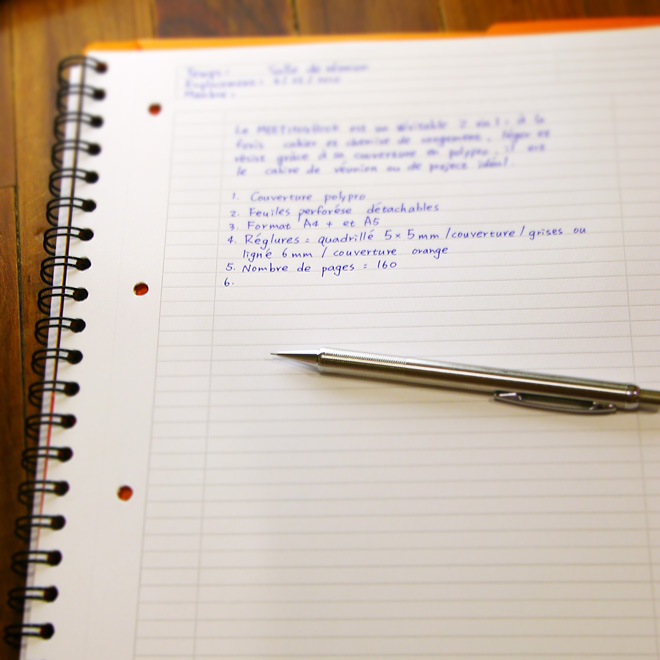 Temps: Salle de réunion
Emplacement:
Membre:
Le MEETINGBOOK est un véritable 2 en 1: à la
fois cahier et chemise de rangement. léger et
résist grâce à sa couverture en polypro, il est
le cahire de réunion ou de project idéal.
1. Couverture polypro
2. Feuilles perforése détachables
3. Format A4 + et A5
4. Réglures = quadrillé 5×5mm/couverture/grises ou
ligné 6mm / couverture orange
5. Nombre de pages = 160
6.